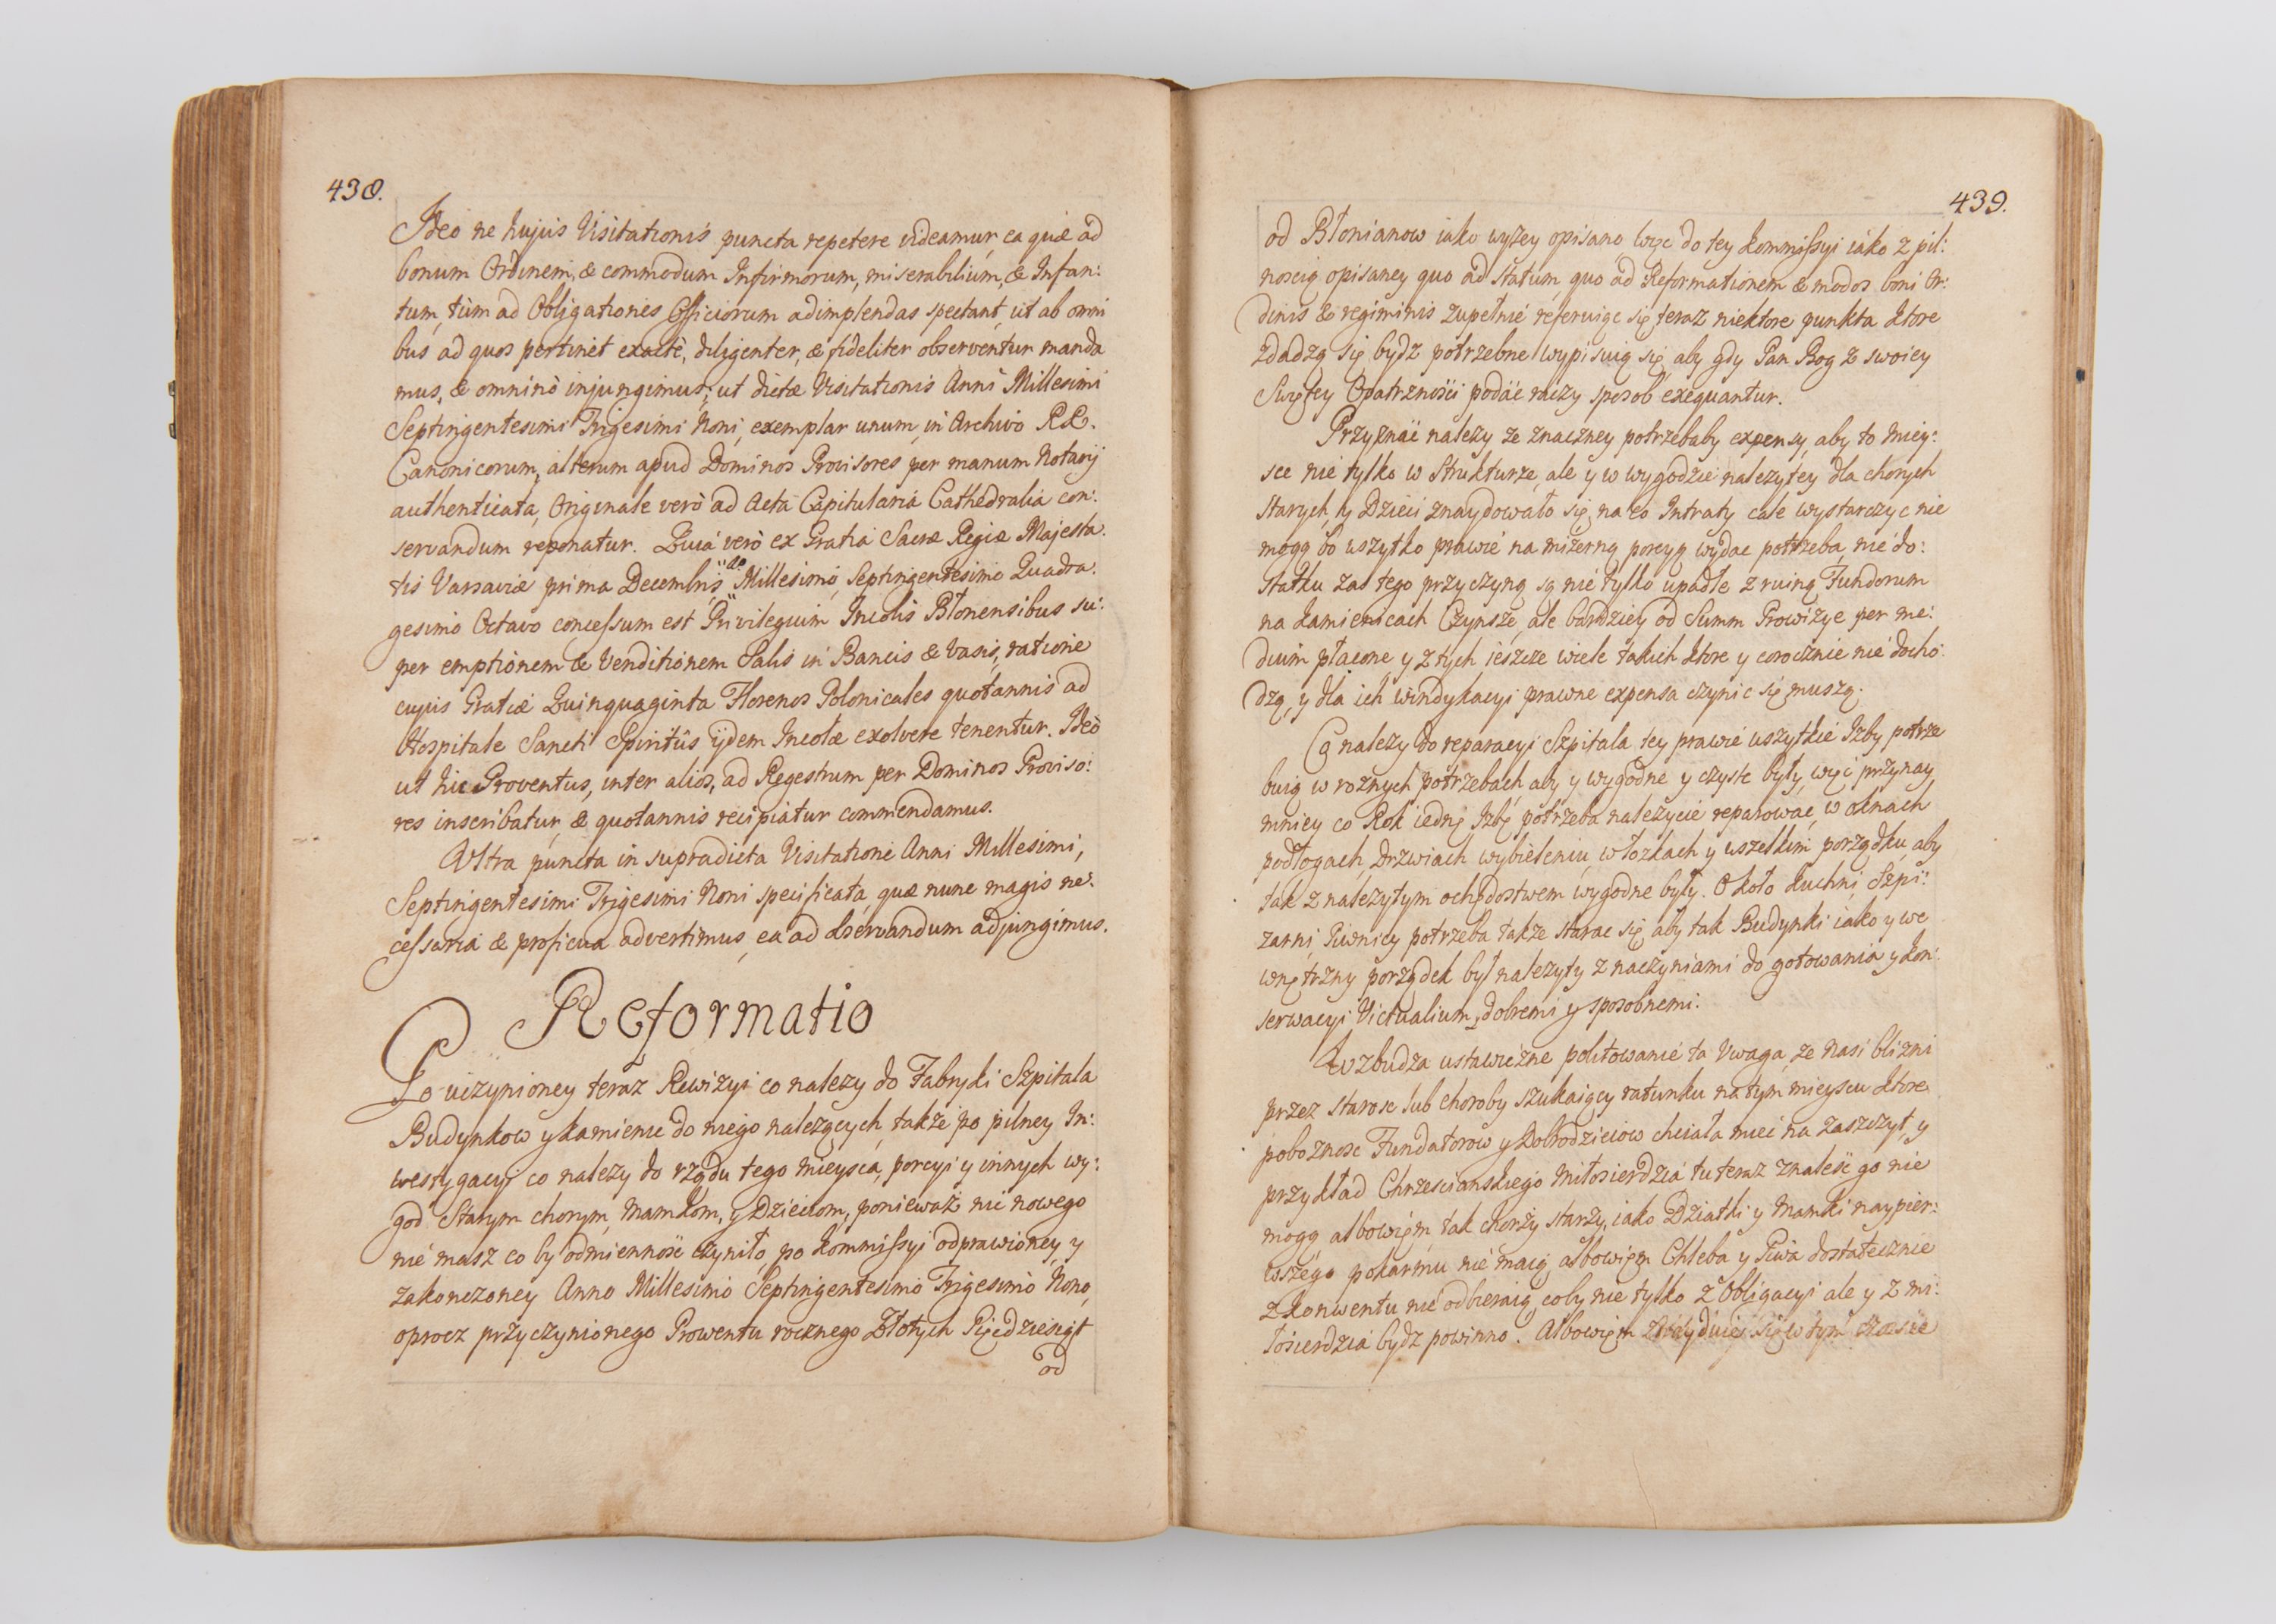 438.
Ideo ne hujus Visitationis puncta repetere videamur, ea quæ ad
bonum Ordinem, & commodum Infirmorum, miserabilium, & Infan:
tum, tùm ad Obligationes Officiorum adimplendas spectant, ut ab omni
bus ad quos pertinet exactè, diligenter, & fideliter observentur manda
mus, & omninò injungimus; ut dictæ Visitationis Anni Millesimi
Septingentesimi Trigesimi Noni, exemplar unum in Archivo RR.
Canonicorum, alterum apud Dominos Provisores per manum Notarij
authenticata, Originale verò ad Acta Capitularia Cathedralia con:
servandum reponatur. Quia verò ex Gratia Sacræ Regiæ Majesta:
tis Varsaviæ prima Decembris Millesimo, Septingentesimo Quadra:
gesimo Octavo concessum est Privilegium Incolis Błonensibus su:
per emptionem & Venditionem Salis in Bancis & Vasis, ratione
cujus Gratiæ Quinquaginta Florenos Polonicales quotannis ad
Hospitale Sancti Spiritûs ijdem Incolæ exolvere tenentur. Ideò
ut hic Proventus, inter alios, ad Regestrum per Dominos Proviso:
res inscribatur, & quotannis recipiatur commendamus.
Ultra puncta in supradicta Visitatione Anni Millesimi,
Septingentesimi Trigesimi Noni specificata, quæ nunc magis ne:
cessaria & proficua advertimus, ea ad observandum adjungimus.
Reformatio
Po uczynioney teraz Rewizyi co nalezy do Fabryki Szpitala
Budynkow y kamienic do niego nalezących, takze po pilney In:
westygacyi co nalezy do rządu tego mieysca, porcyi y innych wy:
god Starym chorym, Mamkom, y Dzieciom, poniewaz nic nowego
nie masz co by odmiennosć czyniło, po kommissyi odprawioney, y
zakonczoney Anno Millesimo Septingentesimo Trigesimo Nono,
oprocz przyczynionego Prowentu rocznego Złotych Pięcdziesiąt
od
439.
od Błonianow iako wyzey opisano więc do tey kommissyi iako z pil:
noscią opisaney quo ad statum, quo ad Reformationem & modos boni Or:
dinis & regiminis zupełnie referuiąc się, teraz niektore punkta ktore
zdadzą się bydz potrzebne wypisuią się, aby gdy Pan Bog z swoiey
Swiętey Opatrznosci podać raczy sposob exequantur.
Przyznać nalezy ze znaczney potrzebaby expensy, aby to miey:
sce nie tylko w Strukturze, ale y w wygodzie nalezytey dla chorych
starych, y Dzieci znaydowało się, na co Intraty cale wystarczyc nie
mogą bo wszytko prawie na mizerną porcyą wydac potrzeba, nie do:
statku zas tego przyczyną są nie tylko upadłe z ruiną Fundorum
na kamienicach Czynsze, ale bardziey od Summ Prowizye per me:
dium płacone y z tych ieszcze wiele takich ktore y corocznie nie docho:
dzą, y dla ich windykacyi prawne expensa czynic się muszą.
Co nalezy do reparacyi Szpitala tey prawie wszytkie Izby potrze
buią w roznych potrzebach aby y wygodne y czyste były, więc przynay
mniey co Rok iednę Izbę potrzeba nalezycie reparowac, w oknach
podłogach, Drzwiach, wybieleniu, w łozkach y wszelkim porządku, aby
tak z nalezytym ochędostwem wygodne były. Około kuchni, Szpi:
zarni, Piwnicy potrzeba takze starac się, aby tak Budynki iako y we
wnętrzny porządek był nalezyty z naczyniami do gotowania y kon:
serwacyi Victualium, dobremi y sposobnemi.
Wzbudza ustawiczne politowanie ta Uwaga, ze nasi blizni
przez starosc lub choroby szukaiący ratunku na tym mieyscu ktore
poboznosc Fundatorow y Dobrodzieiow chciała miec na zaszczyt, y
przykład Chrzescianskiego Miłosierdzia tu teraz znalesć go nie
mogą albowiem tak chorzy starzy, iako Dziatki y Mamki naypier:
wszego pokarmu nie maią albowiem Chleba y Piwa dostatecznie
z konwentu nie odbieraią, coby nie tylko z Obligacyi ale y z mi:
łosierdzia bydz powinno. Albowiem znayduie się w tym czasie